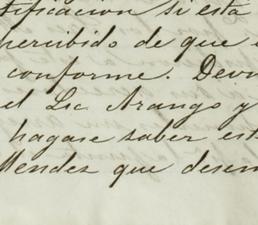 tificacion si este
percibido de que
conforme. Devu
el Lic Arango y
hagase saber est
Mendez que desem